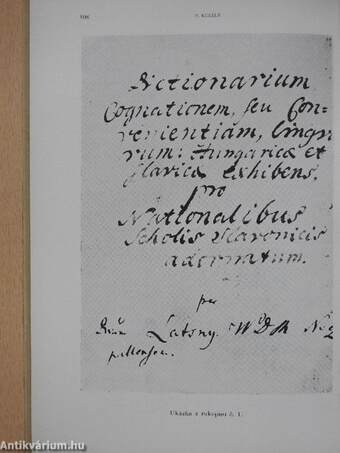 108
P. KIRÁLY
Dictionarium
Cognationem, seu Con=
venientiam, lingva
rum: Hungaricæ et
Slavicæ exhibens.
pro
Nationalibus
Scholis Slavonicis
adornatum.
per
Latsny. W D M
Ukázka z rukopisu č. 1.
Antikvárium.hu